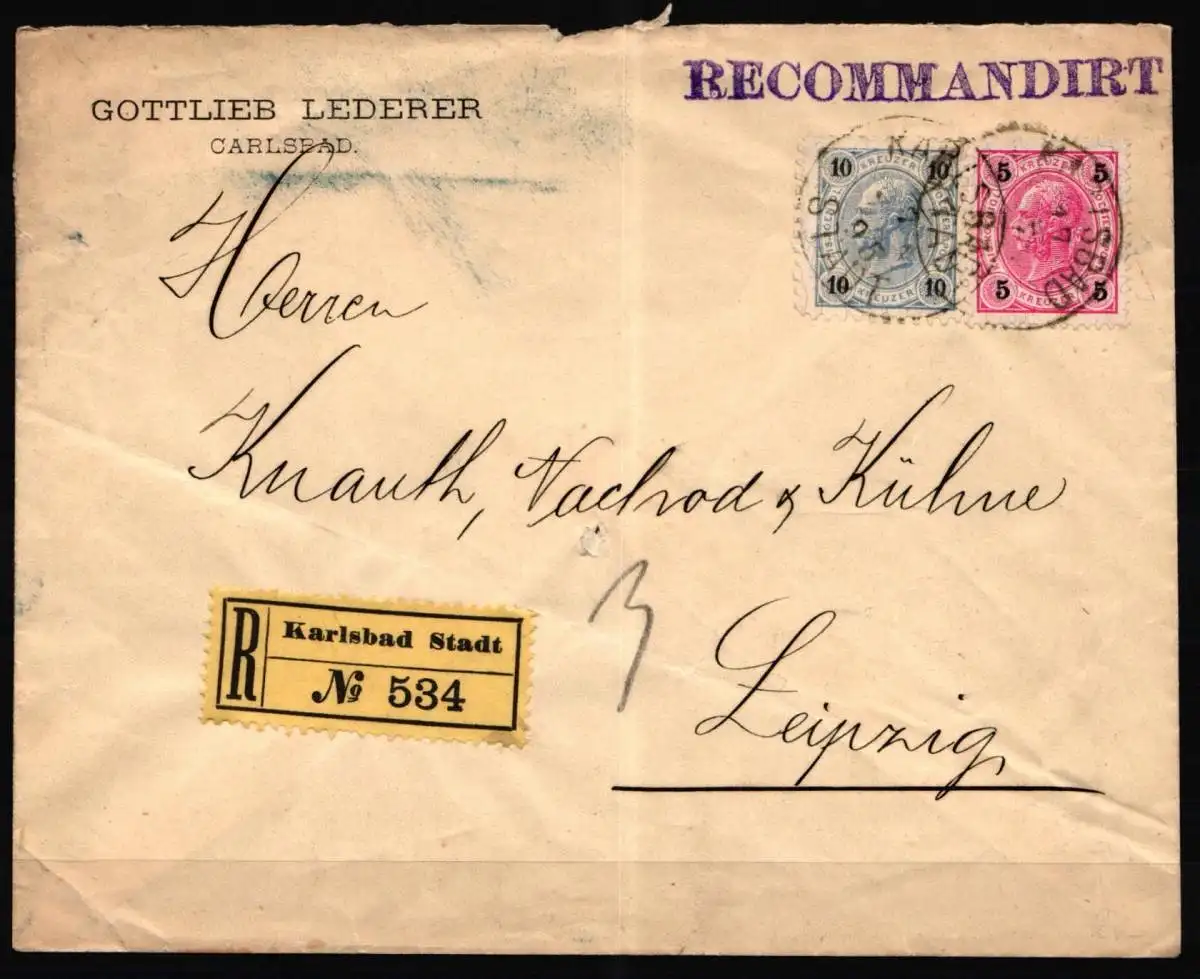 RECOMMANDIRT
GOTTLIEB LEDERER
CARLSBAD.
10 KREUZER 10
10 KREUZER 10
5 KREUZER 5
5 KREUZER 5
KARLSBAD
Herren
Knauth, Nachod & Kühne
Leipzig
R Karlsbad Stadt
No 534